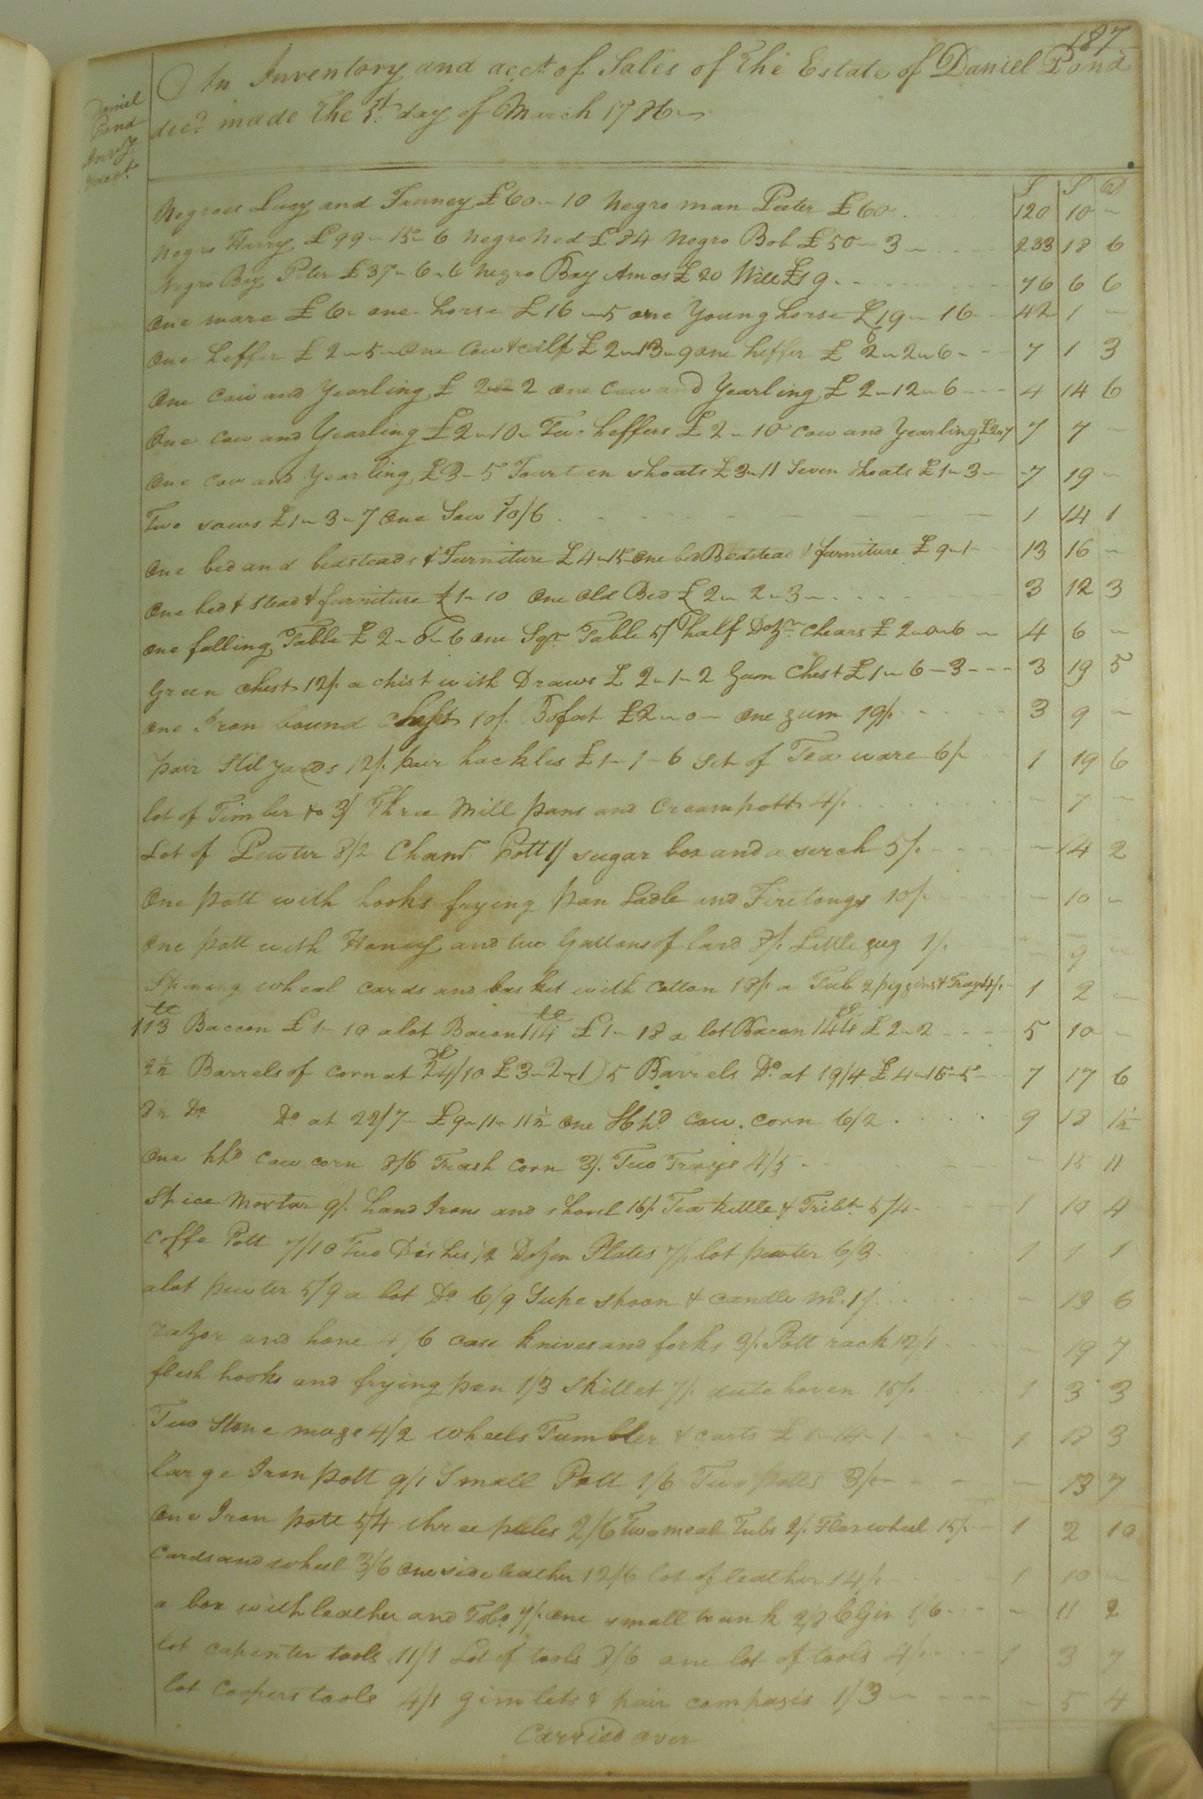 187
An Inventory and acct. of Sales of the Estate of Daniel Pond
decd made the 3d. day of March 1786
Daniel
Pond
Invy
acct.
£ S d
Negroes Lucy and Fanney £60 - 10 Negro man Peter £60 120 10 -
Negro Harry £99 - 15 - 6 negro Ned £84 Negro Bob £50 - 3 - 233 18 6
Negro Boy Peter £37 - 6 - 6 Negro Boy Amos £20 Will £19 76 6 6
One mare £6 - one horse £16 - 5 one Young horse £19 - 16 42 1 -
One heffer £2 - 5 - One Cow & calf £2 - 13 - 9 one heffer £2 - 2 - 6 7 1 3
One Cow and Yearling £2 - 2 one Cow and Yearling £2 - 12 - 6 4 14 6
One Cow and Yearling £2 - 10 - Two heffers £2 - 10 cow and Yearling £2 - 7 7 7 -
One Cow and Yearling £3 - 5 Fourteen shoats £3 - 11 Seven Shoats £1 - 3 - 7 19 -
Two sows £1 - 3 - 7 One Sow 10/6 1 14 1
One bed and bedsteads & Furniture £4 - 15 One bed Bedstead & furniture £9 - 1 13 16 -
One bed & stead & furniture £1 - 10 One Old Bed £2 - 2 - 3 3 12 3
One falling Table £2 - 0 - 6 One Sqr Table 5/ half Dozn chears £2 - 0 - 6 4 6 -
Green chest 12/. a chist with Draws £2 - 1 - 2 Gum Chest £1 - 6 - 3 3 19 5
One Iron bound Chest 10/. Bofat £2 - 0 - One gum 19/. 3 9 -
pair Stilyards 12/. pair hackles £1 - 1 - 6 Set of Tea ware 6/. 1 19 6
lot of Timber &c 3/ Three Mill pans and Creampotts 4/. - 7 -
Lot of Pewter 8/2 Cham. Pott 1/ sugar box and a serch 5/. - 14 2
One pott with hooks frying pan Ladle and Firetongs 10/. - 10 -
One pott with Honey and two Gallons of lard 8/. Little jug 1/. - 9 -
Spinning wheal cards and basket with Cotton 18/. a Tub 2 piggins & Trays 4/. 1 2 -
113 Baccon £1 - 10 a lot Bacon 114 £1 - 18 a lot Bacon 144 £2 - 2 5 10 -
2½ Barrels of corn at 24/10 £3 - 2 - 1) 5 Barrels Do. at 19/4 £4 - 15 - 5 7 17 6
8½ Do Do at 22/7 £9 - 11 - 11½ One Hhd Cow. corn 6/2 9 18 1½
One hhd Cow corn 8/6 Trash Corn 3/. Two Trays 4/5 - 15 11
Spice Mortar 9/. hand Irons and shovel 16/. Tea kittle & Tribt. 5/4 1 10 4
Coffe Pott 7/10 Two Dishes, 2 Dozen Plates 7/. lot pewter 6/3 1 1 1
a lot pewter 5/9 a lot Do 6/9 Supe spoon & candle md. 1/. - 13 6
razor and hone 4/6 case knives and forks 3/. Pott rack 12/1 - 19 7
flesh hooks and frying pan 1/3 Skillet 7/. dutchoven 15/. 1 3 3
Two Stone mugs 4/2 wheels Tumbler & carts £1 - 14 - 1 1 18 3
large Iron pott 9/1 Small Pott 1/6 Two potts 3/. - 13 7
One Iron pott 5/4 three pales 2/6 Two meal Tubs 2/. Flax wheel 15/. 1 2 10
Cards and wheel 3/6 One side leather 12/6 lot of leather 14/. 1 10 -
a box with leather and Tobo. 7/. one small trunk 2/8 1/6 - 11 2
lot capenter tools 11/1 Lot of tools 8/6 one lot of tools 4/. 1 3 7
lot Coopers tools 4/1 gimlets & pair compases 1/3 - 5 4
Carried over